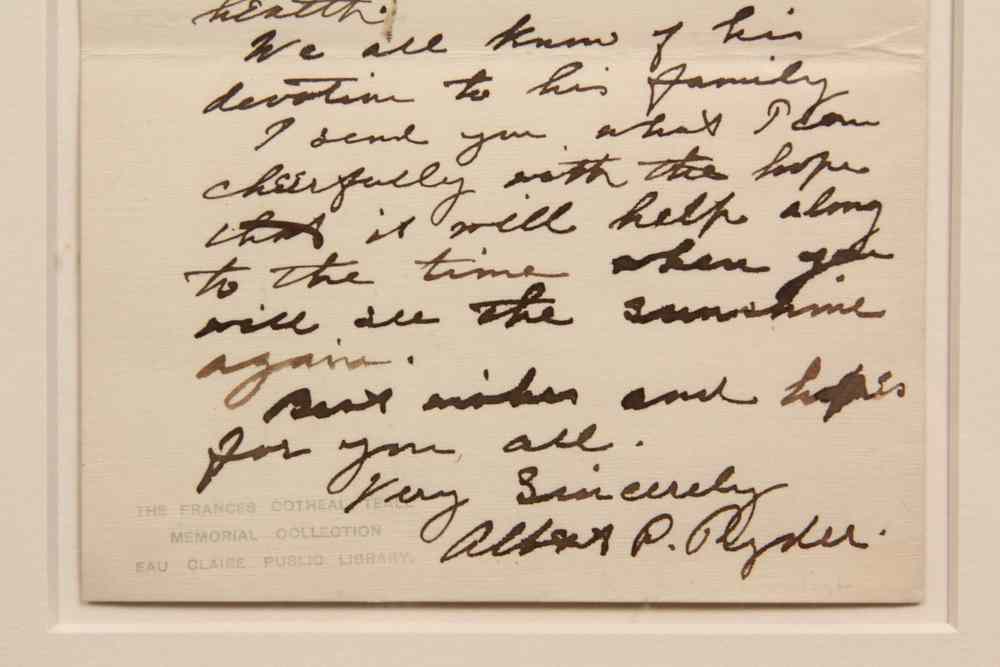 health.
We all know of his
devotion to his family
I send you what I can
cheerfully with the hope
that it will help along
to the time when you
will see the sunshine
again.
Best wishes and hopes
for you all.
Very Sincerely
Albert P. Ryder.
THE FRANCES COTHEAL TEALL
MEMORIAL COLLECTION
EAU CLAIRE PUBLIC LIBRARY.